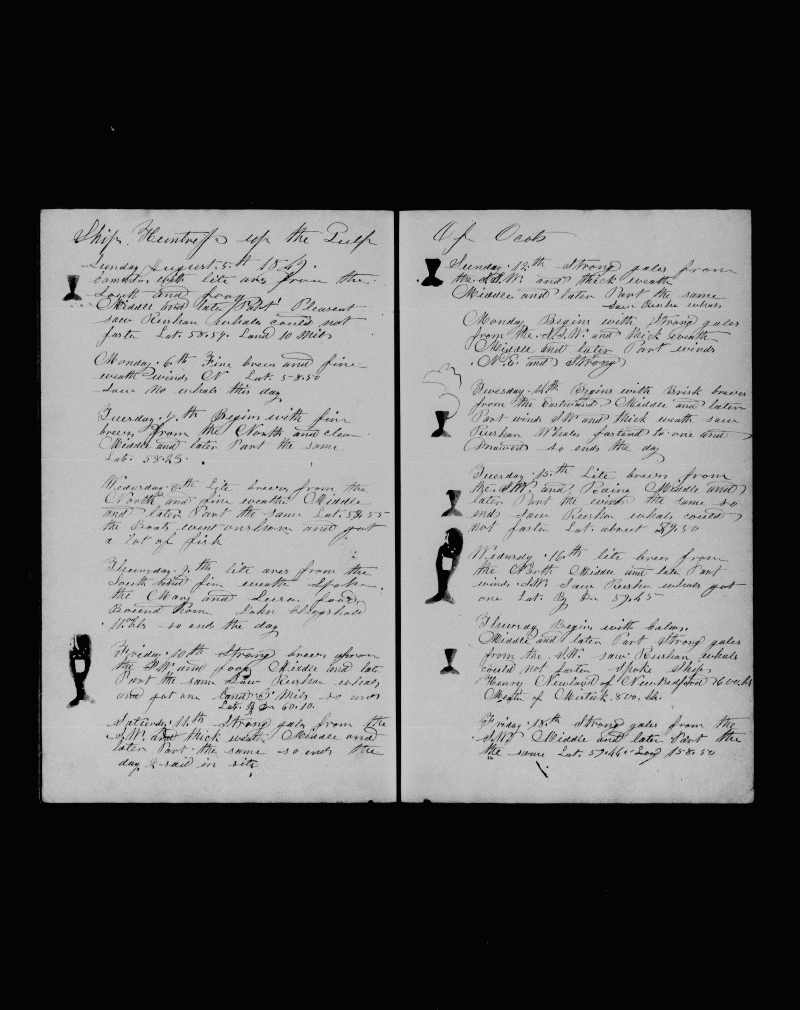 Ship Huntress up the Gulf
Sunday August 5th 1849.
Comences with lite ares from the
South and foog
Middle and later Part Pleasent
saw Rushan whales could not
fasten Lat. 58.59. Land 10 Mils
Monday 6th Fine brees and fine
weath winds N Lat. 58.50
saw no whals this day
Tuersday 7th Begins with fine
brees from the North and clear
Middle and later Part the same
Lat. 58.23.
Wednrsday 8th Lite brees from the
North and fine weathe Middle
and later Part the same Lat.
the Boats went onshore and got
a lot of fish
Thuersday 9th lite ares from the
South and fine weath Spoke
the Mary and Susan
Bound Home John
so ends the day
Friday 10th Strong brees from
the S.W. and foog Middle and late
Part the same Saw Rushan whals
and got one land 5 Mils so ends
Lat. By Dr 60.10.
Saturday 11th Strong gals from the
S.W. and thick weath Middle and
later Part the same so ends the
day & said in site
Of Ocots
Sunday 12th strong gales from
the S.W. and thick weath
Middle and later Part the same
saw Rusha whals
Monday Begins with Strong gales
from the S.W. and thick weath
Middle and later Part winds
N.E. and Strong
Tuesday 14th Begins with Brisk brees
from the Eastward Middle and later
Part winds SW and thick weath saw
Rushan Whales fastend to one and
Drawed so ends the day
Tuersday 15th Lite brees from
the SW. and Middle and
later Part the winds the same so
ends saw Rushan whals could
not fasten Lat. about 59.50
Wednrsdy 16th lite brees from
the North Middle and late Part
winds S.W. Saw Rushan whales got
one Lat. By Dr 59.45
Thuersday Begins with calms.
Middle and later Part Strong gales
from the S.W. saw Rushan whals
could not fasten Spoke Ships
Henry of New Bedford 2600. bls
of Mistick 800. bls.
Friday 18th Strong gales from the
S.W. Middle and later Part the
the same Lat. 57.44 Long 158.50